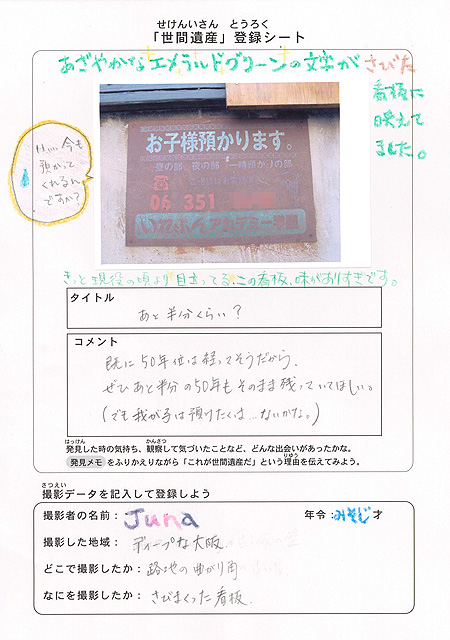 せけんいさん　とうろく
「世間遺産」登録シート
あざやかなエメラルドグリーンの文字がさびた
看板に
映えて
ました。
今も
預かって
くれるん
ですか？
お子様預かります。
昼の部 夜の部 一時預かりの部
06 351
きっと現役の頃より目立ってる、この看板、味がありすぎです。
タイトル
あと半分くらい？
コメント
既に50年位は経ってそうだから、
ぜひあと半分の50年もそのまま残っていてほしい。
（でも我が子は預けたくは…ないかな。）
はっけん かんさつ
発見した時の気持ち、観察して気づいたことなど、どんな出会いがあったかな。
りゆう
発見メモ をふりかえりながら「これが世間遺産だ」という理由を伝えてみよう。
さつえい
撮影データを記入して登録しよう
撮影者の名前： Juna 年令：みそじ才
撮影した地域： ディープな大阪
どこで撮影したか： 路地の曲がり角
なにを撮影したか： さびまくった看板